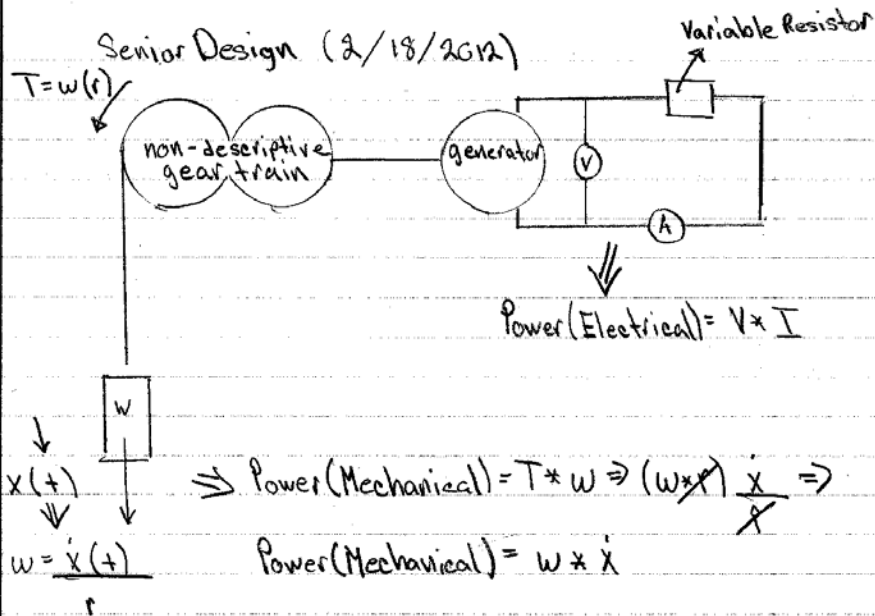 Senior Design (2/18/2012)
Variable Resistor
T=w(r)
non-descriptive
gear train
generator
V
A
Power(Electrical)= V* I
W
x(t)
⇒ Power(Mechanical)= T* w ⇒ (w*r) ẋ/r ⇒
w = ẋ(t)/r
Power(Mechanical)= w * ẋ